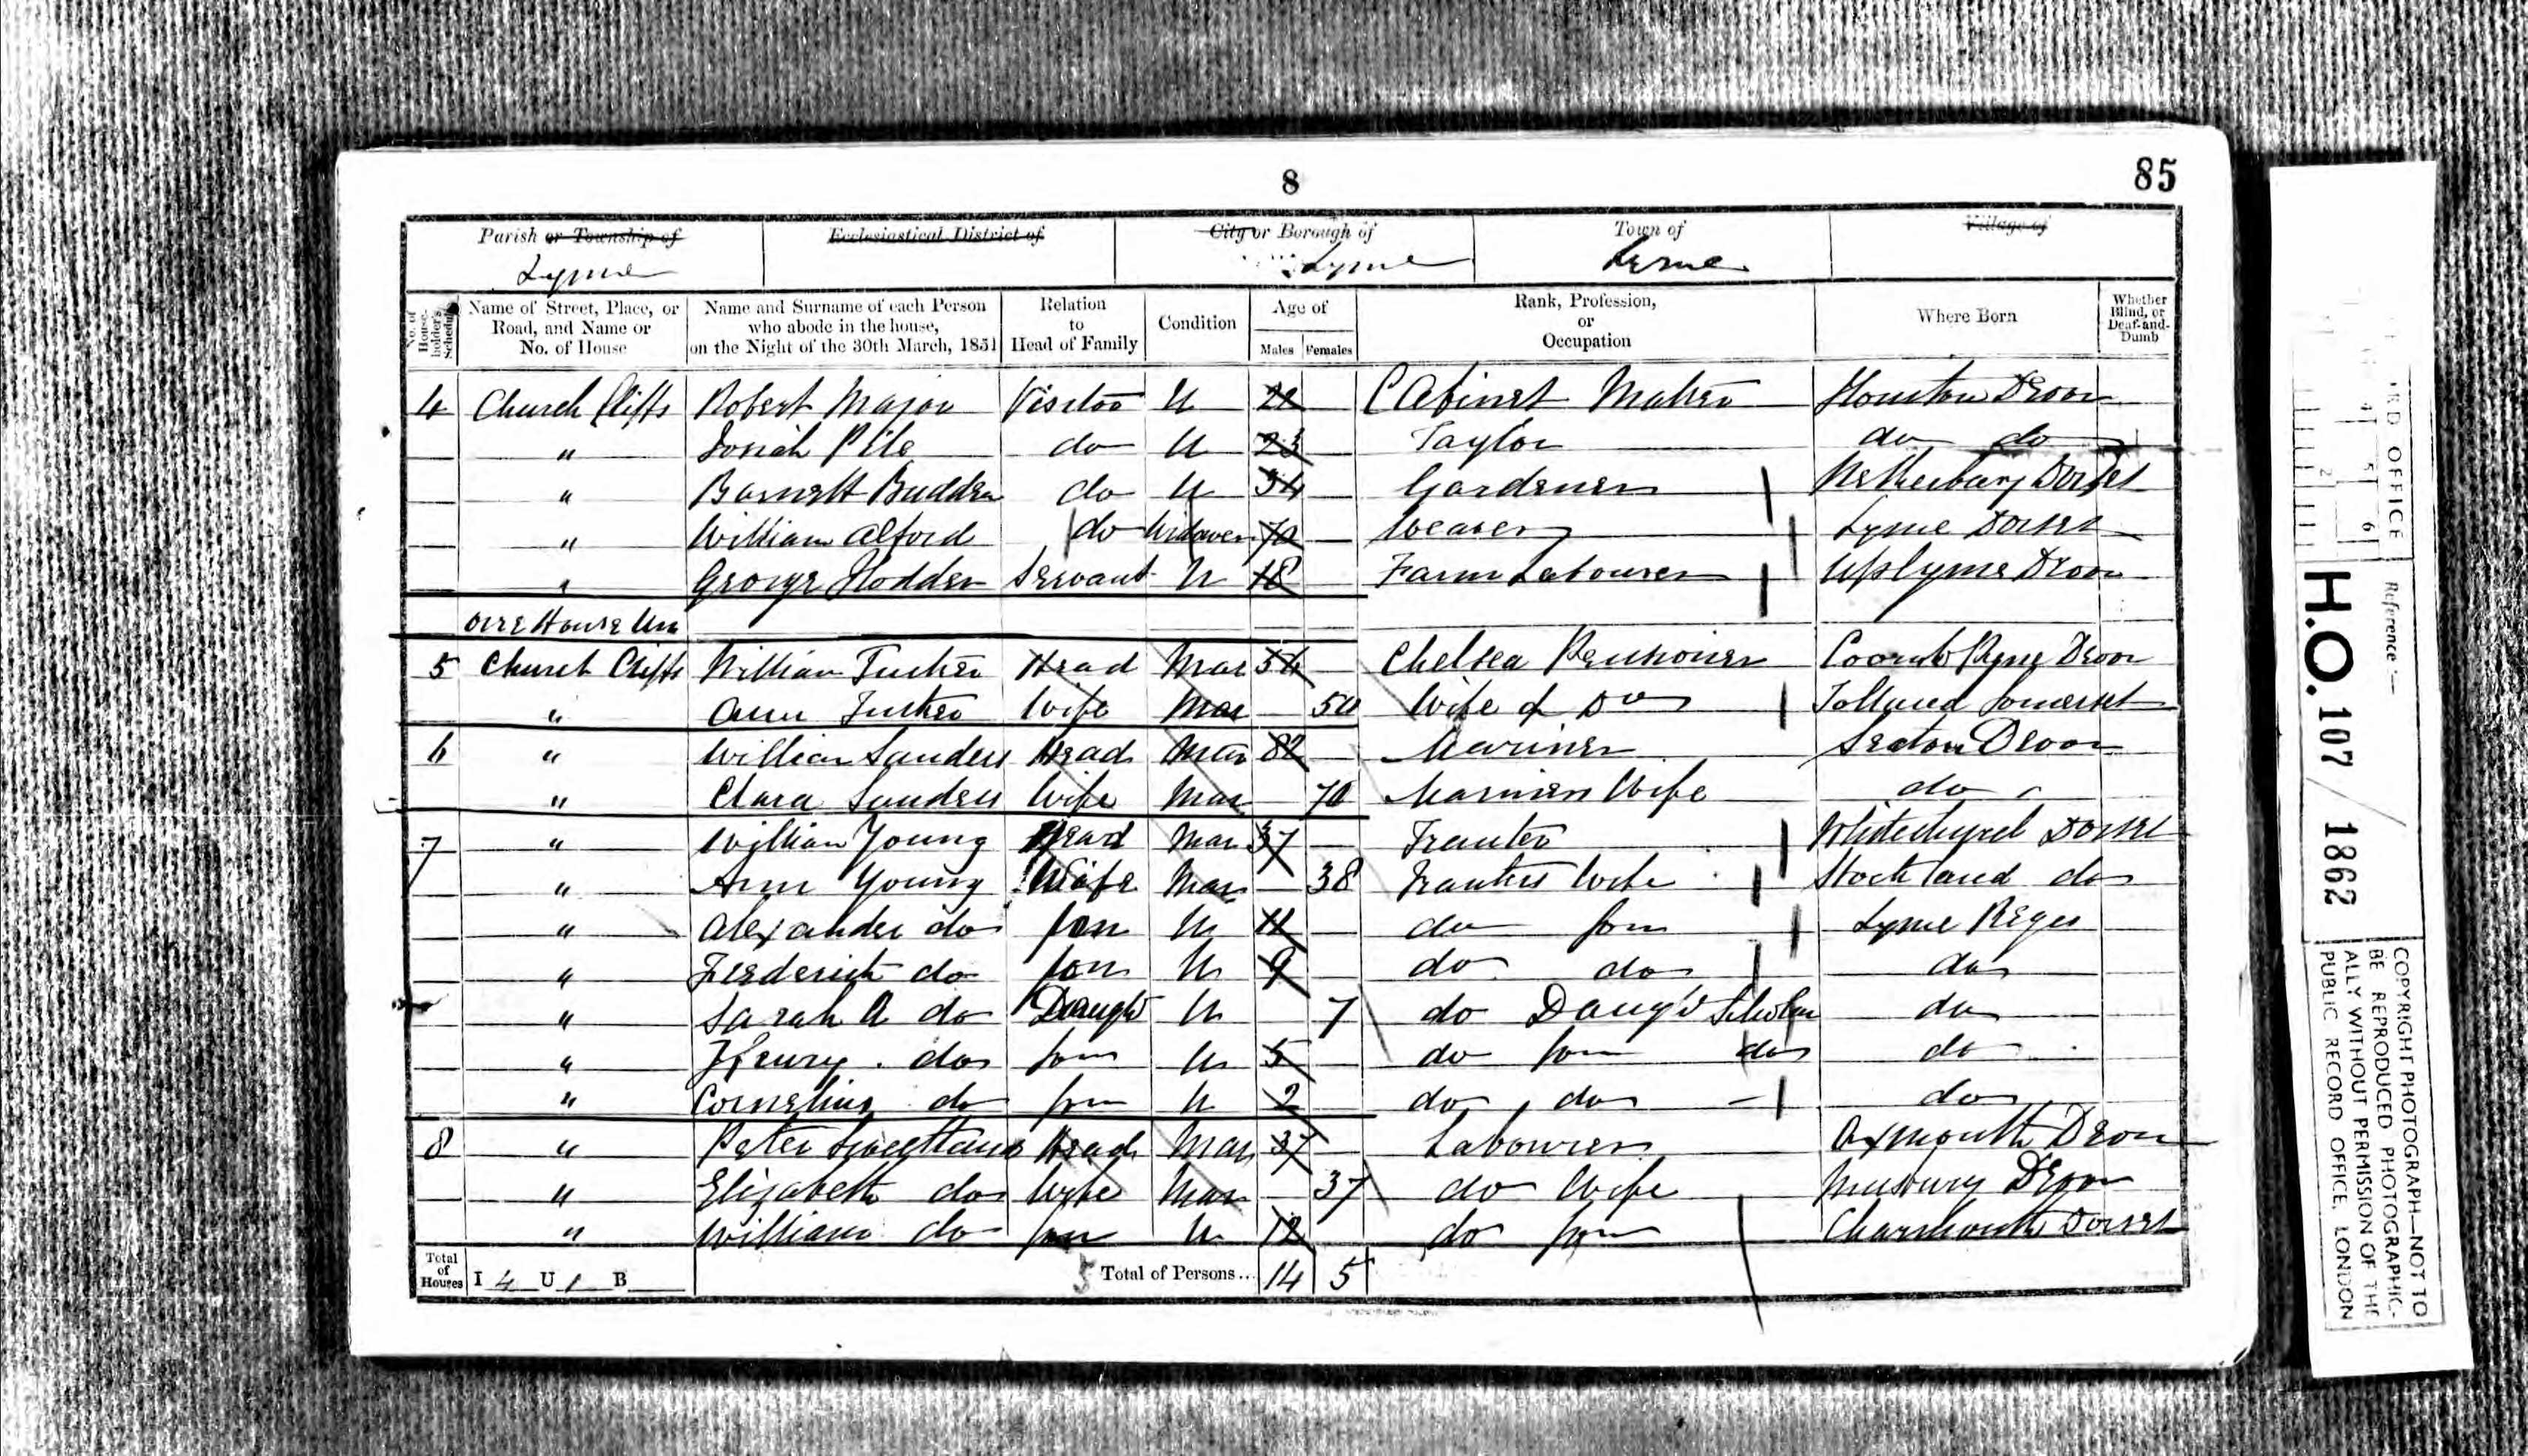 8
85
Parish or Township of
Ecclesiastical District of
City or Borough of
Town of
Village of
Lyme
Lyme
Lyme
No. of House-holder's Schedule
Name of Street, Place, or Road, and Name or No. of House
Name and Surname of each Person who abode in the house, on the Night of the 30th March, 1851
Relation to Head of Family
Condition
Age of
Males Females
Rank, Profession, or Occupation
Where Born
Whether Blind, or Deaf-and-Dumb
4 Church Cliffs Robert Major Visitor U 22 Cabinet Maker Honiton Devon
" Josiah Pile do U 23 Taylor do do
" Barnett Budden do U 34 Gardener Netherbury Dorset
" William Alford do Widower 70 Weaver Lyme Dorset
" George Hodder Servant U 18 Farm Labourer Uplyme Devon
One House Un
5 Church Cliffs William Tucker Head Mar 54 Chelsea Pensioner Coomb Pyne Devon
" Ann Tucker Wife Mar 50 Wife of Do Somerset
6 " William Sanders Head Mar 82 Mariner Seaton Devon
" Clara Sanders Wife Mar 70 Mariners Wife do
7 " William Young Head Mar 37 Tranter Whitechurch Dorset
" Ann Young Wife Mar 38 Tranters Wife Stockland do
" Alexander do Son U 11 do Son Lyme Regis
" Frederick do Son U 9 do do do
" Sarah A do Daugr U 7 do Daugr Scholar do
" Henry do Son U 5 do Son do do
" Cornelius do Son U 2 do do do
8 " Peter Head Mar 37 Labourer Axmouth Devon
" Elizabeth do Wife Mar 37 do Wife Musbury Devon
" William do Son U 12 do Son Charmouth Dorset
Total of Houses I 4 U 1 B
5 Total of Persons... 14 5
RD OFFICE
Reference :—
H.O. 107 / 1862
COPYRIGHT PHOTOGRAPH—NOT TO
BE REPRODUCED PHOTOGRAPHIC-
ALLY WITHOUT PERMISSION OF THE
PUBLIC RECORD OFFICE, LONDON